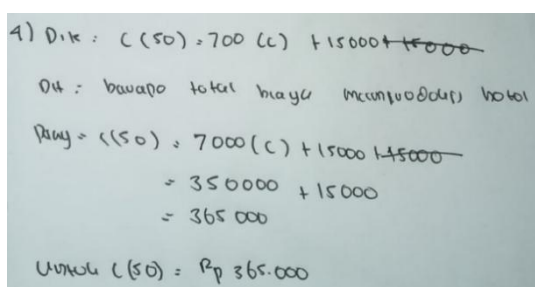 4) Dik : C(50) = 700 (c) + 15000 + 15000
Dit : berapa total biaya hotel
Peny = C(50) = 7000 (c) + 15000 + 15000
= 350000 + 15000
= 365 000
Untuk C(50) = Rp 365.000